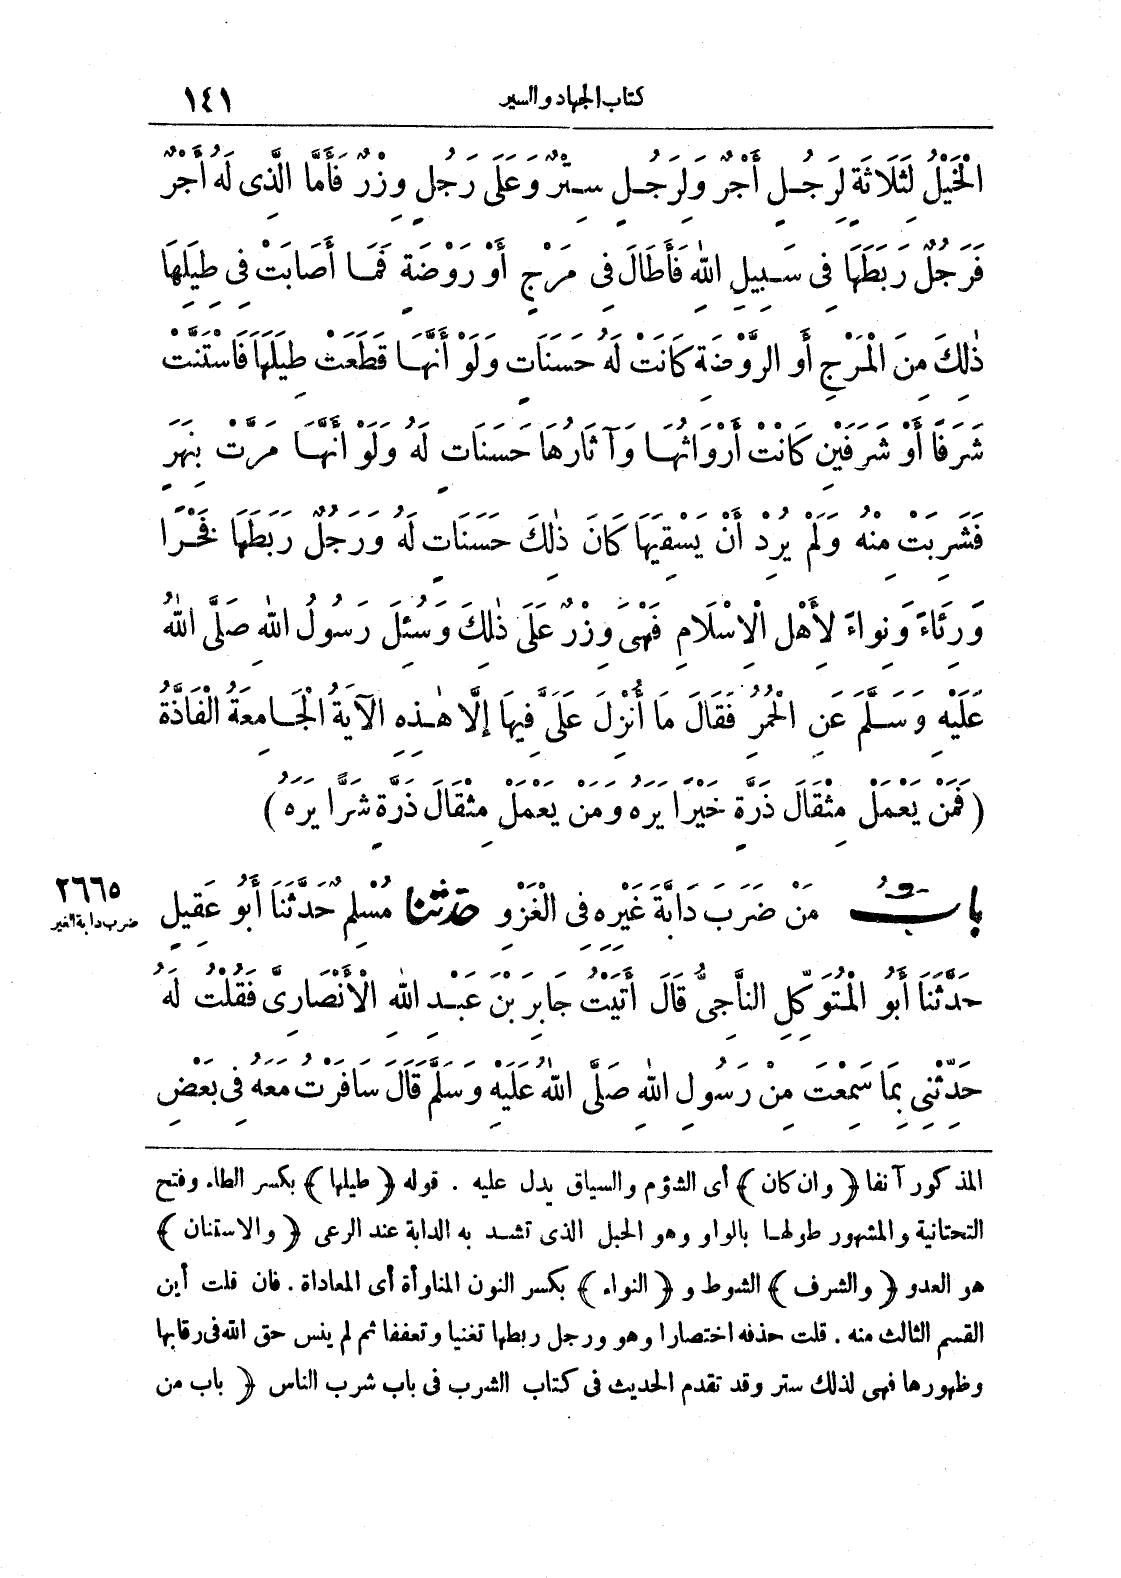 كتاب الجهاد والسير
١٤١
الْخَيْلُ لِثَلَاثَةٍ لِرَجُلٍ أَجْرٌ وَلِرَجُلٍ سِتْرٌ وَعَلَى رَجُلٍ وِزْرٌ فَأَمَّا الَّذِى لَهُ أَجْرٌ
فَرَجُلٌ رَبَطَهَا فِى سَبِيلِ اللهِ فَأَطَالَ فِى مَرْجٍ أَوْ رَوْضَةٍ فَمَا أَصَابَتْ فِى طِيَلِهَا
ذٰلِكَ مِنَ الْمَرْجِ أَوِ الرَّوْضَةِ كَانَتْ لَهُ حَسَنَاتٍ وَلَوْ أَنَّهَا قَطَعَتْ طِيَلَهَا فَاسْتَنَّتْ
شَرَفًا أَوْ شَرَفَيْنِ كَانَتْ أَرْوَاثُهَا وَآثَارُهَا حَسَنَاتٍ لَهُ وَلَوْ أَنَّهَا مَرَّتْ بِنَهَرٍ
فَشَرِبَتْ مِنْهُ وَلَمْ يُرِدْ أَنْ يَسْقِيَهَا كَانَ ذٰلِكَ حَسَنَاتٍ لَهُ وَرَجُلٌ رَبَطَهَا فَخْرًا
وَرِئَاءً وَنِوَاءً لِأَهْلِ الْإِسْلَامِ فَهْىَ وِزْرٌ عَلَى ذٰلِكَ وَسُئِلَ رَسُولُ اللهِ صَلَّى اللهُ
عَلَيْهِ وَسَلَّمَ عَنِ الْحُمُرِ فَقَالَ مَا أُنْزِلَ عَلَىَّ فِيهَا إِلَّا هٰذِهِ الْآيَةُ الْجَامِعَةُ الْفَاذَّةُ
( فَمَنْ يَعْمَلْ مِثْقَالَ ذَرَّةٍ خَيْرًا يَرَهُ وَمَنْ يَعْمَلْ مِثْقَالَ ذَرَّةٍ شَرًّا يَرَهُ )
٢٦٦٥
ضرب دابة الغير
بَابُ مَنْ ضَرَبَ دَابَّةَ غَيْرِهِ فِى الْغَزْوِ حَدَّثَنَا مُسْلِمٌ حَدَّثَنَا أَبُو عَقِيلٍ
حَدَّثَنَا أَبُو الْمُتَوَكِّلِ النَّاجِىُّ قَالَ أَتَيْتُ جَابِرَ بْنَ عَبْدِ اللهِ الْأَنْصَارِىَّ فَقُلْتُ لَهُ
حَدِّثْنِى بِمَا سَمِعْتَ مِنْ رَسُولِ اللهِ صَلَّى اللهُ عَلَيْهِ وَسَلَّمَ قَالَ سَافَرْتُ مَعَهُ فِى بَعْضِ
المذكور آنفا ﴿ وان كان ﴾ أى الشؤم والسياق يدل عليه . قوله ﴿ طيلها ﴾ بكسر الطاء وفتح
التحتانية والمشهور طولها بالواو وهو الحبل الذى تشد به الدابة عند الرعى ﴿ والاستنان ﴾
هو العدو ﴿ والشرف ﴾ الشوط و ﴿ النواء ﴾ بكسر النون المناوأة أى المعاداة . فان قلت أين
القسم الثالث منه . قلت حذفه اختصارا وهو ورجل ربطها تغنيا وتعففا ثم لم ينس حق الله فى رقابها
وظهورها فهى لذلك ستر وقد تقدم الحديث فى كتاب الشرب فى باب شرب الناس ﴿ باب من